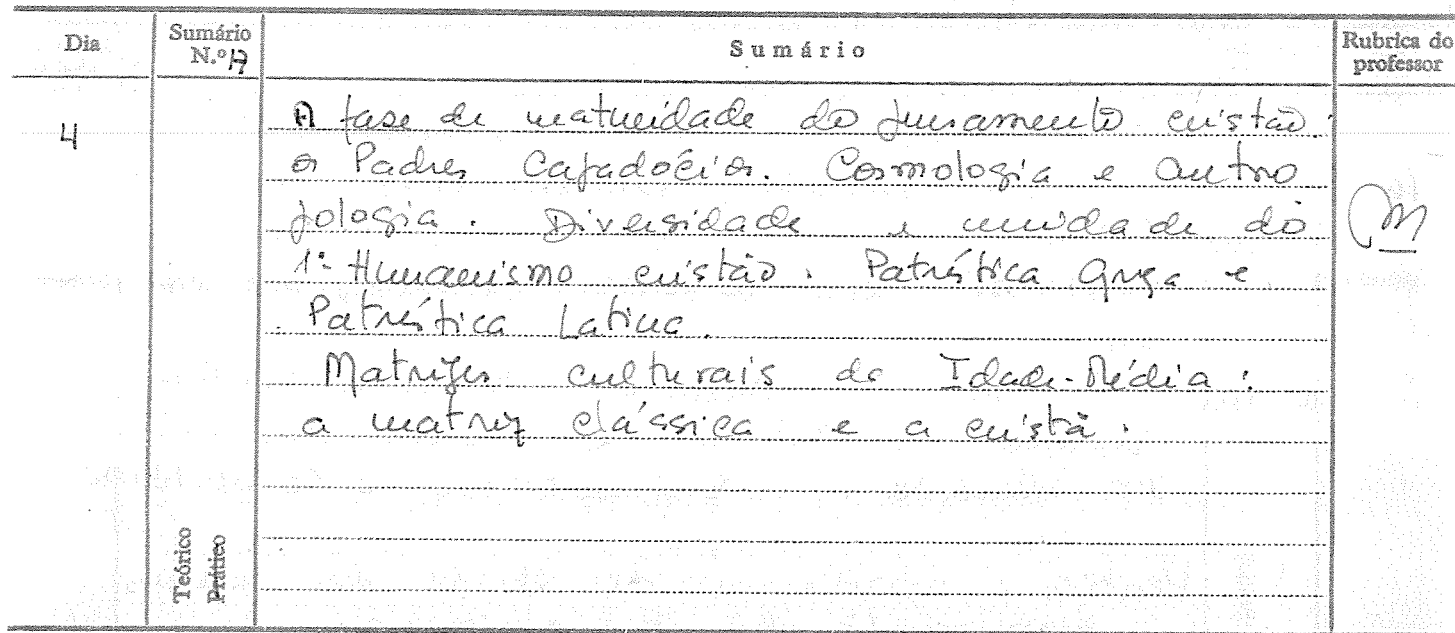 Dia
Sumário
N.º
Sumário
Rubrica do
professor
4
A fase de maturidade do pensamento cristão:
os Padres Capadócios. Cosmologia e Antro
pologia. Diversidade e unidade do
1º Humanismo cristão. Patrística Grega e
Patrística Latina.
Matrizes culturais da Idade-Média:
a matriz clássica e a cristã.
Teórico
Prático